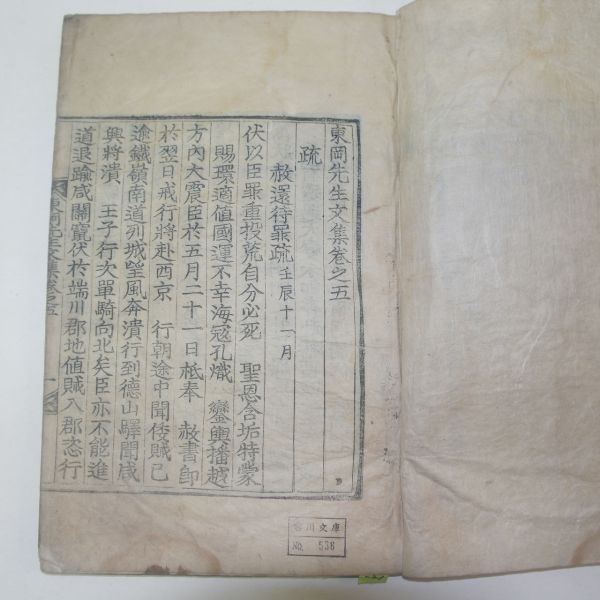 東岡先生文集卷之五
疏
赦還待罪疏 壬辰十一月
伏以臣罪重投荒自分必死 聖恩含垢特蒙
賜環適値國運不幸海寇孔熾 鑾輿播越
方內大震臣於五月二十一日祗奉 赦書卽
於翌日戒行將赴西京 行朝途中聞倭賊已
逾鐵嶺南道列城望風奔潰行到德山驛聞咸
興將潰 王子行次單騎向北矣臣亦不能進
道退踰咸關竄伏於端川郡地値賊入郡恣行
宮川文庫
No. 536